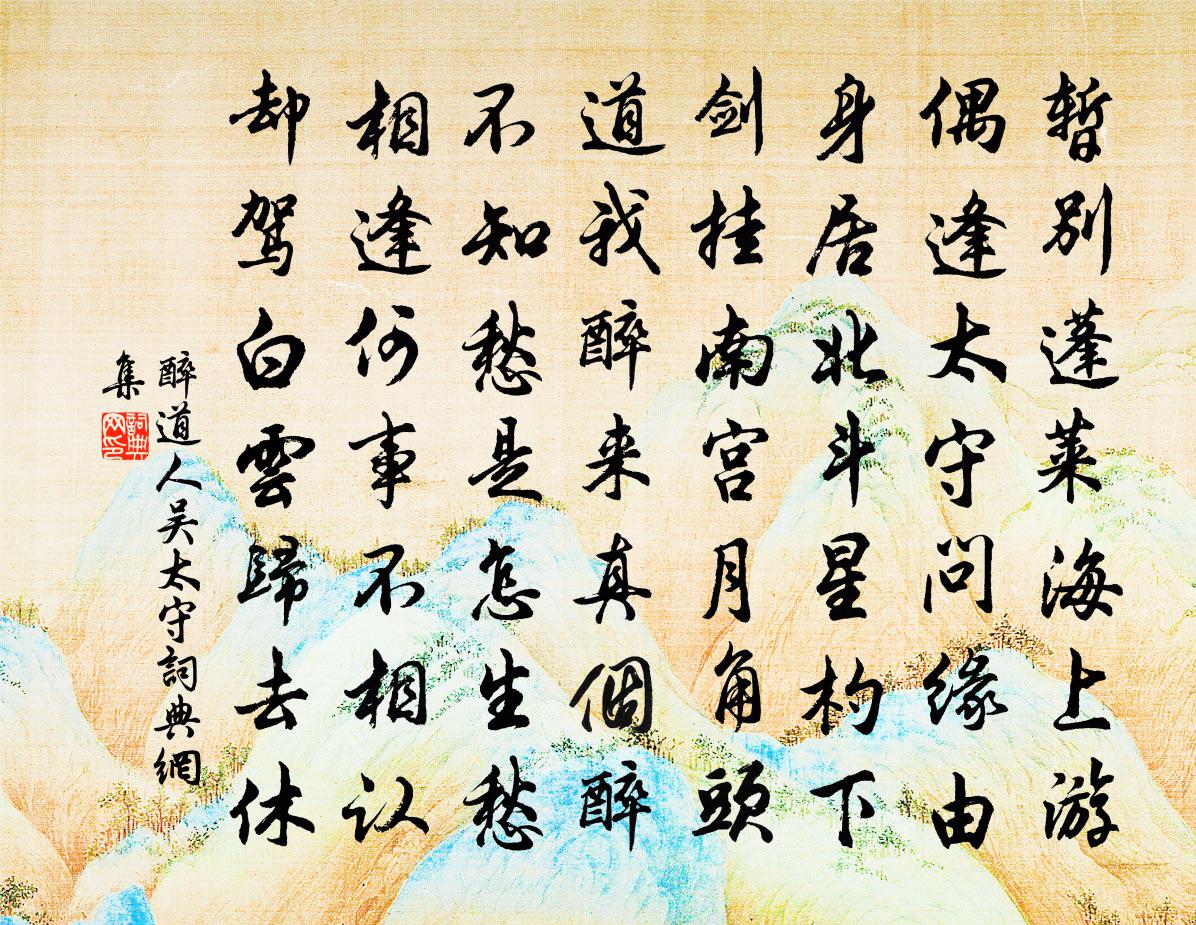 暫別蓬萊海上游
偶逢太守問緣由
身居北斗星杓下
劍挂南宮月角頭
道我醉来真個醉
不知愁是怎生愁
相逢何事不相认
却驾白雲歸去休
醉道人吴太守詞典網
集
詞典网印